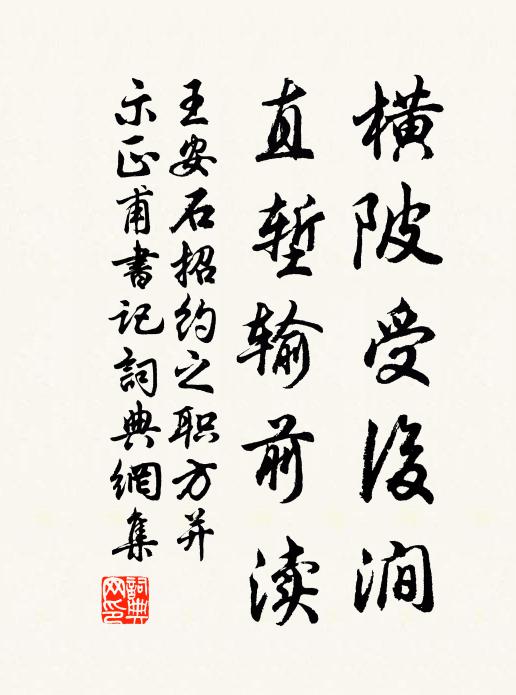 横陂受後涧
直堑输前渎
王安石招约之职方并
示正甫書记詞典網集
詞典网印